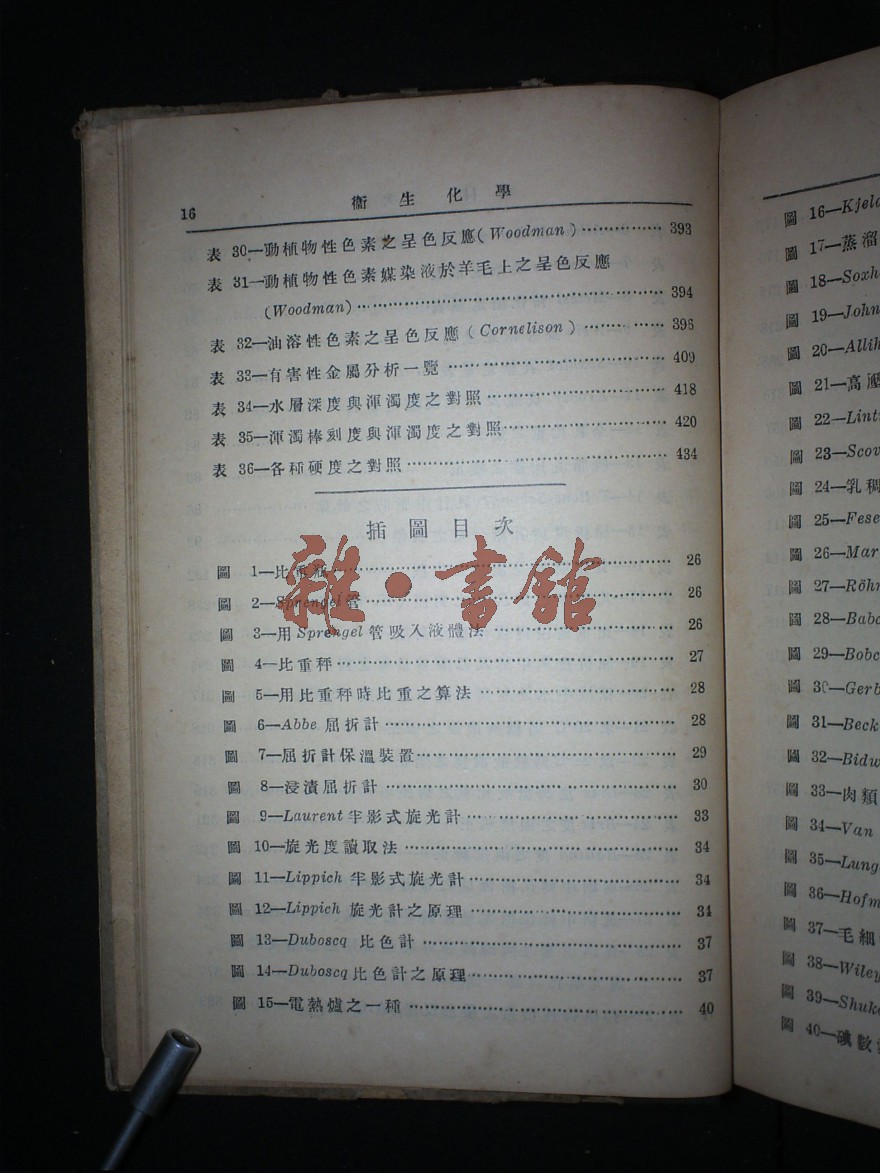 16
衞生化學
表 30—動植物性色素之呈色反應(Woodman)……………393
表 31—動植物性色素媒染液於羊毛上之呈色反應
(Woodman)……………394
表 32—油溶性色素之呈色反應(Cornelison)……………396
表 33—有害性金屬分析一覽……………409
表 34—水層深度與渾濁度之對照……………418
表 35—渾濁棒刻度與渾濁度之對照……………420
表 36—各種硬度之對照……………434
插圖目次
圖 1—比重瓶……………26
圖 2—Sprengel管……………26
圖 3—用Sprengel管吸入液體法……………26
圖 4—比重秤……………27
圖 5—用比重秤時比重之算法……………28
圖 6—Abbe屈折計……………28
圖 7—屈折計保溫裝置……………29
圖 8—浸漬屈折計……………30
圖 9—Laurent半影式旋光計……………33
圖 10—旋光度讀取法……………34
圖 11—Lippich半影式旋光計……………34
圖 12—Lippich旋光計之原理……………34
圖 13—Duboscq比色計……………37
圖 14—Duboscq比色計之原理……………37
圖 15—電熱爐之一種……………40
雜·書館
圖 16—Kjeld
圖 17—蒸溜
圖 18—Soxh
圖 19—John
圖 20—Allih
圖 21—高壓
圖 22—Lint
圖 23—Scov
圖 24—乳稠
圖 25—Fese
圖 26—Mar
圖 27—Röhr
圖 28—Babc
圖 29—Bobc
圖 30—Gerb
圖 31—Beck
圖 32—Bidw
圖 33—肉類
圖 34—Van
圖 35—Lung
圖 36—Hofm
圖 37—毛細
圖 38—Wiley
圖 39—Shuk
圖 40—碘數